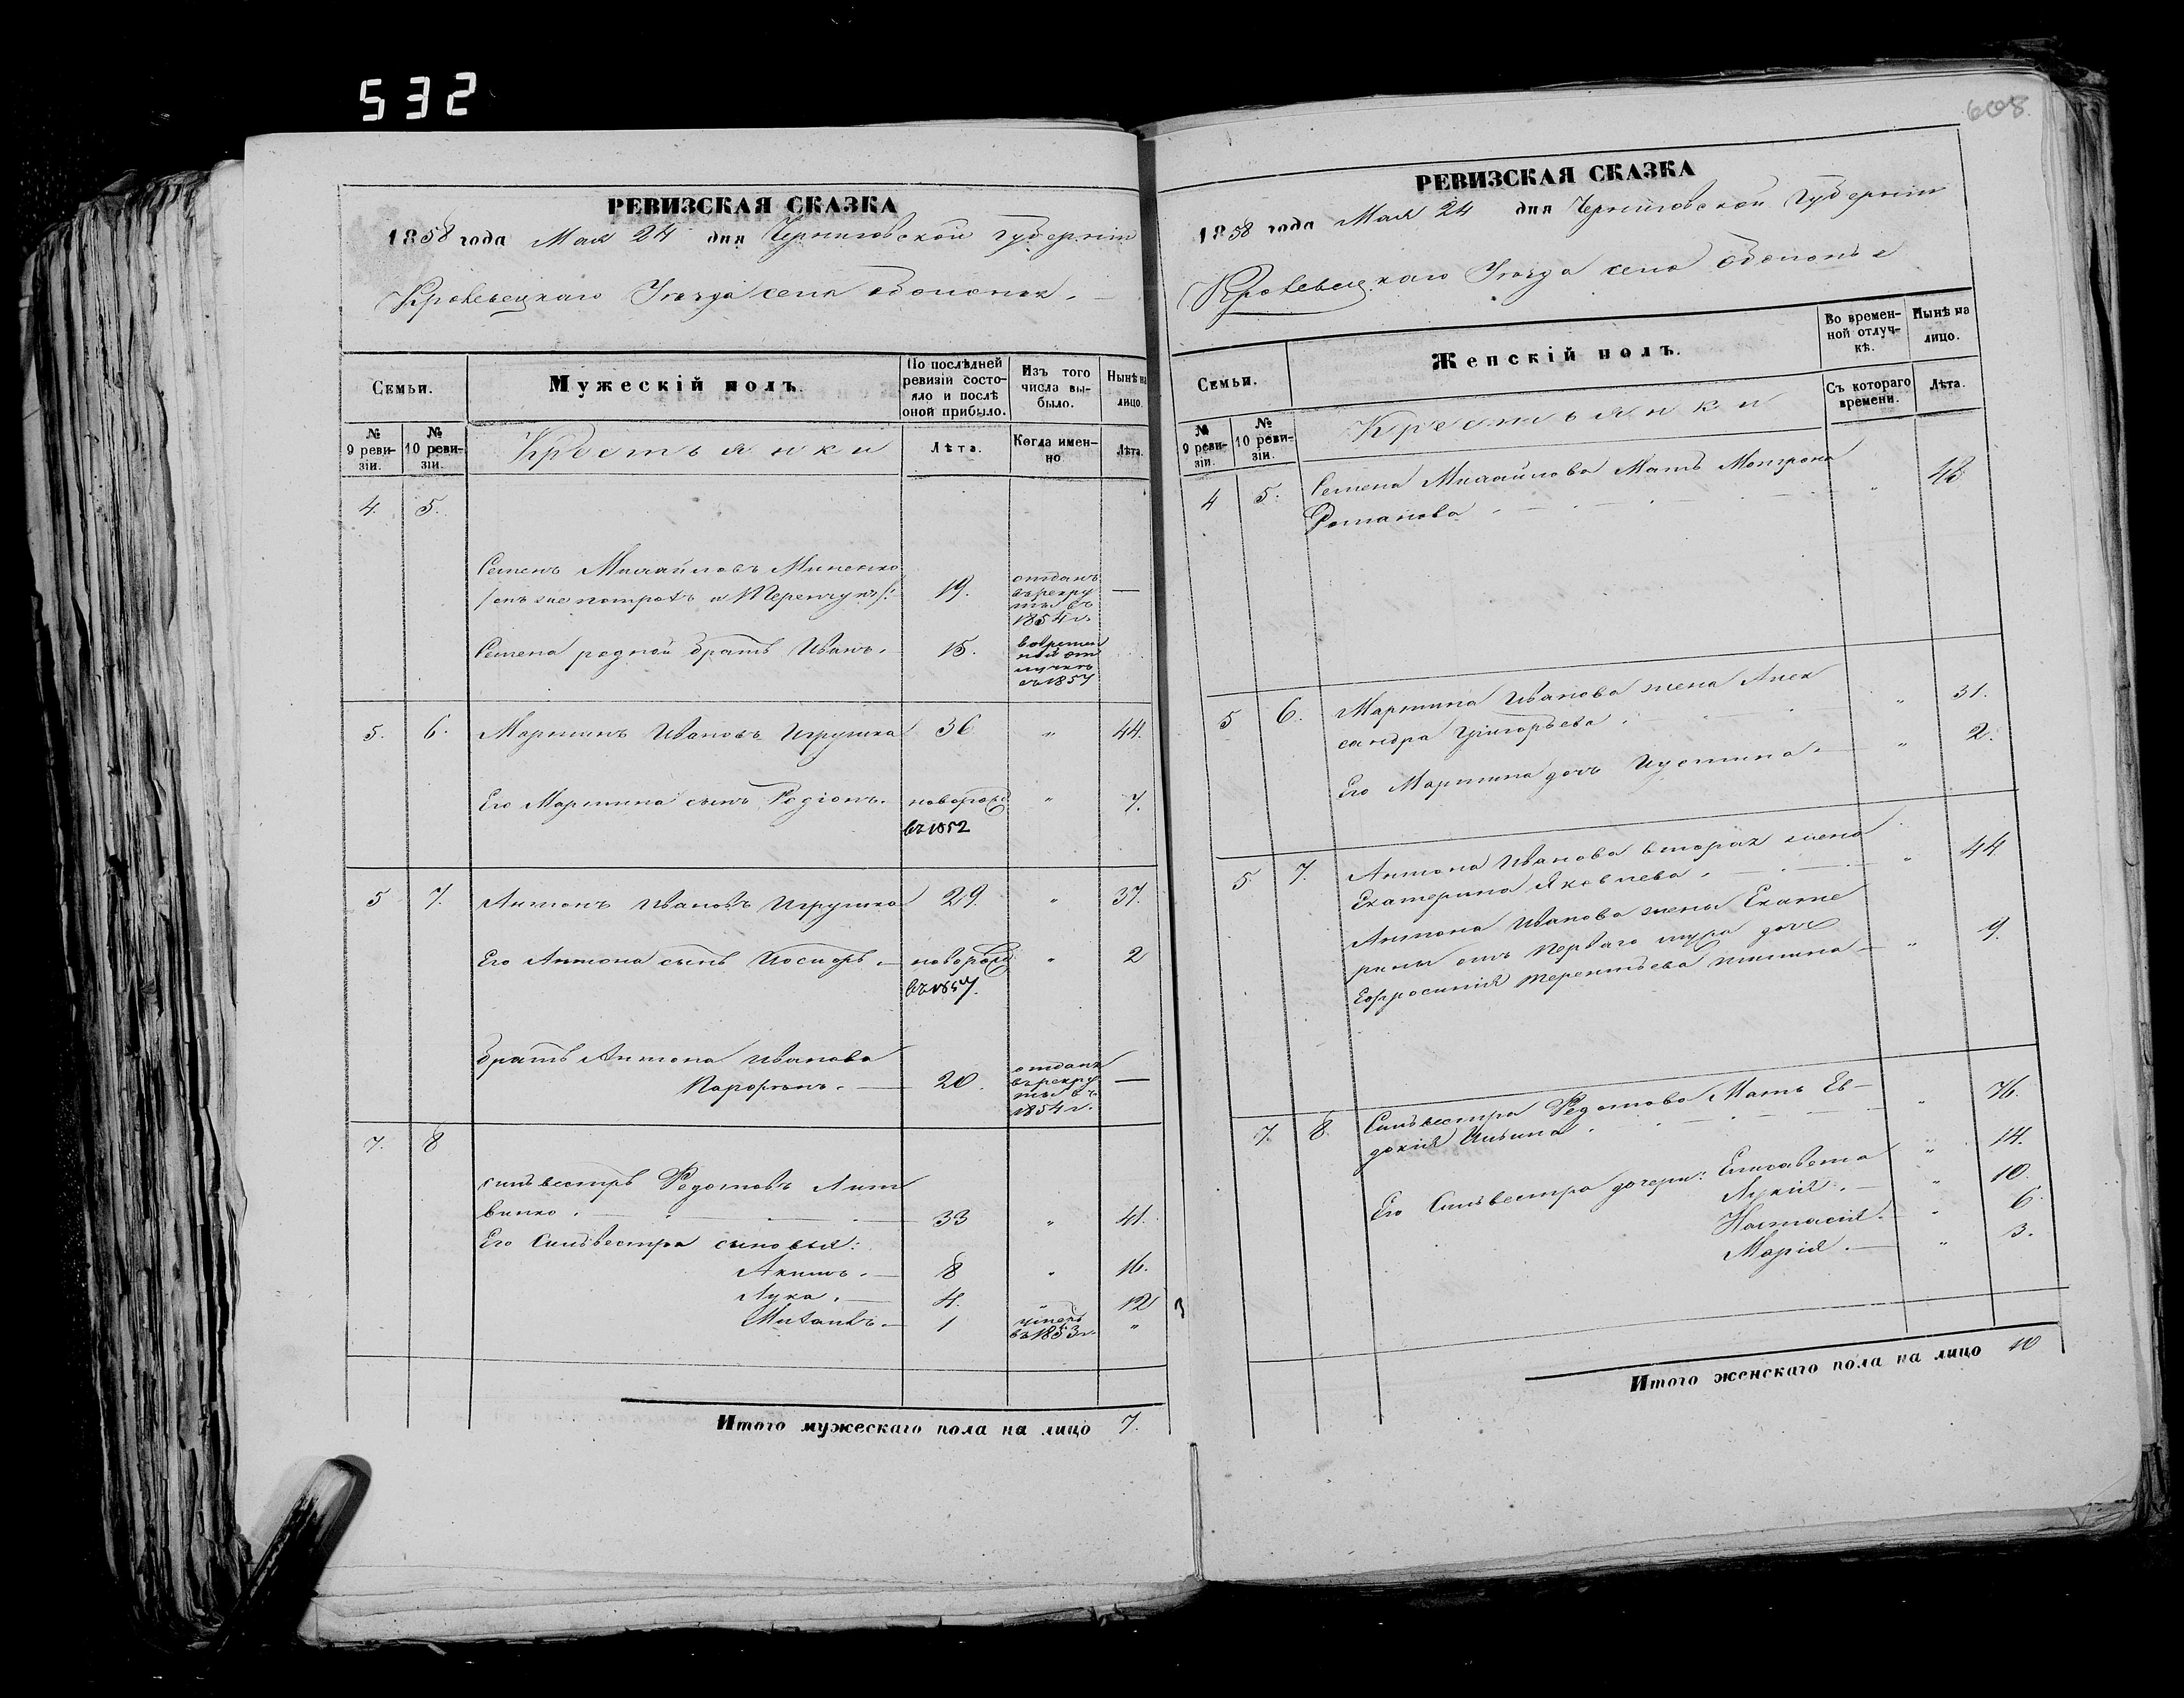 532
608
РЕВИЗСКАЯ СКАЗКА
1858 года Мая 24 дня Черниговской Губернии
Кролевецкаго Уезда села Оболонья
Семьи.
Мужескій полъ.
По послѣдней ревизіи состояло и послѣ оной прибыло.
Изъ того числа выбыло.
Нынѣ на лицо.
№ 9 ревизіи.
№ 10 ревизіи.
Крестьянки
Лѣта.
Когда именно
Лѣта.
4. 5.
Семенъ Михайловъ Миненко
19. отданъ въ рекруты въ 1854 г. —
Семена родной братъ Иванъ. 15. во временной отлучкѣ съ 1857
5. 6. Мартинъ Ивановъ Игрушка 36 " 44.
Его Мартина сынъ Родіонъ. новорожд " 7.
въ 1852
5 7. Антонъ Ивановъ Игрушка 29. " 37.
Его Антона сынъ Иосифъ. — новорожд. " 2
въ 1857.
братъ Антона Иванова
Парфенъ. — 20. отданъ въ рекруты въ 1854 г. —
7. 8
Сильвестръ Федотовъ Лит
винко. — 33 " 41.
Его Сильвестра сыновья:
Акимъ. — 8 " 16.
Лука. — 4. " 12
1 умеръ въ 1853 г. "
Итого мужескаго пола на лицо 7.
РЕВИЗСКАЯ СКАЗКА
1858 года Мая 24 дня Черниговской Губерніи
Кролевецкаго Уезда села Оболонья
Семьи.
Женскій полъ.
Во временной отлучкѣ.
Нынѣ на лицо.
№ 9 ревизіи.
№ 10 ревизіи.
Крестьянки
Съ котораго времени.
Лѣта.
4 5. Семена Михайлова Мать Мотрона
Романова " 48
5 6. Мартина Иванова жена Алек
сандра Григорьева. " 31.
Его Мартина дочь Иустина. — " 2.
5. 7. Антона Иванова вторая жена
Екатерина Яковлева. " 44.
Антона Иванова жены Екате
рины отъ перваго мужа дочь
Ефросинія Терентьева — " 9.
7. 8. Сильвестра Федотова Мать Ев—
докія Ильина. " 76.
Его Сильвестра дочери: Елисавета " 14.
Лукія. — " 10.
Настасія. " 6.
Марія. — " 3.
Итого женскаго пола на лицо 10